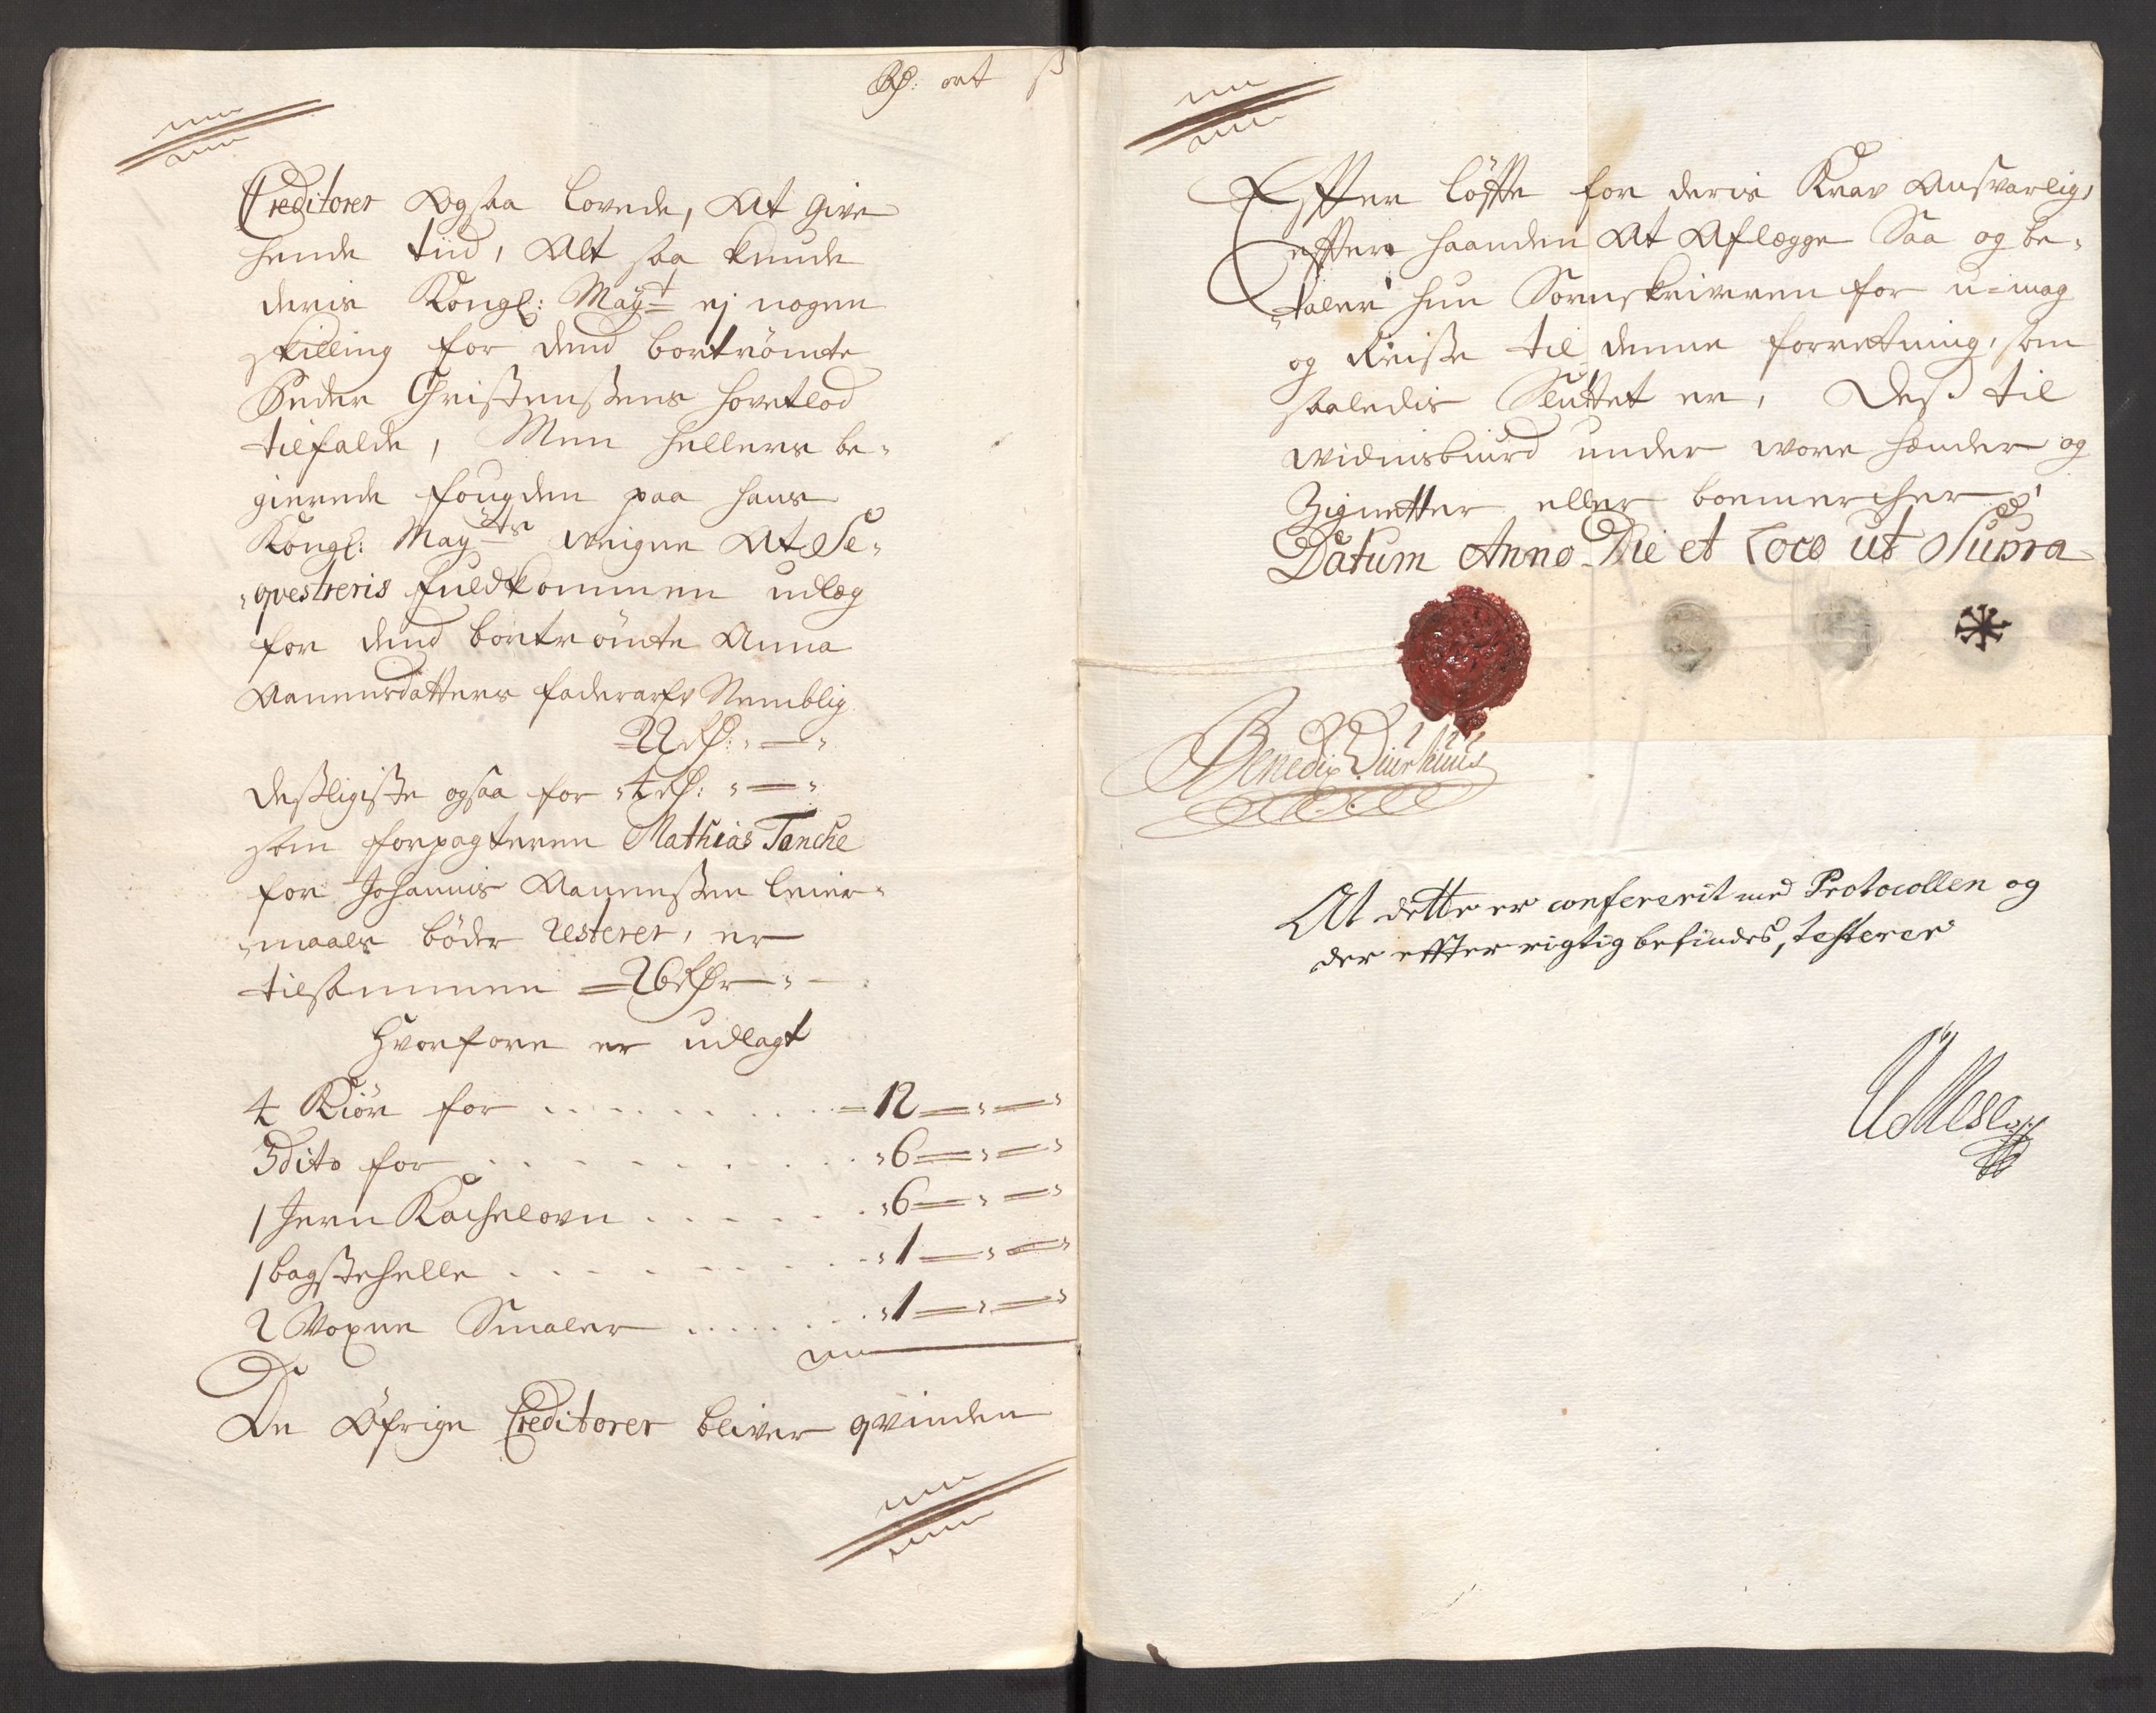 Rd: ort ß
Creditorer Ogsaa lovede, At give
hende tiid, Alt saa kunde
deris Kongl: Mayt ej nogen
skilling for dend bortrömte
Peder Christensens hovetlod
tilfalde, Men hellers be-
gierede fougden paa hans
Kongl: Mayts weigne At Se-
qvestreris fuldkommen udlæg
for dend bortrömte Anna
Aanensdatters faderarfv Nemblig
22 Rd: " — "
desligiste ogsaa for 4 Rd: " — "
som forpagteren Mathias Tanche
for Johannis Aanensen leier-
maals böder resterer, er
tilsammen 26 Rdr " —
Hvorfore er udlagt
4 Kiör for . . . . . . . 12 — " — "
3 dito for . . . . . . . 6 — " — "
1 Jern Kachelovn . . . . . 6 — " — "
1 bagstehelle . . . . . . 1 — " — "
2 Voxne Smaler . . . . . 1 — " — "
De Öfrige Creditorer bliver qvinden
Efter löffte for deris Krav Ansvarlig,
efter haanden At Aflegge Saa og be-
taler hun Sorenskriveren for u-mag
og Reise til denne forretning, som
saaledis Sluttet er, Dess til
widnisbiurd under wore hænder og
Zignetter eller boemercher
Datum Anno Die et Loco ut Supra
Benedix Diurhuus
At dette er confererit med Protocollen og
der effter rigtig befindes, testerer